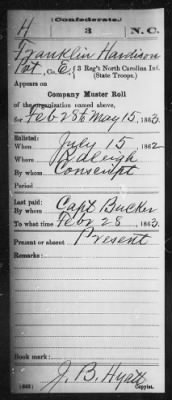 (Confederate.)
H 3 N.C.
Franklin Hardison
Pvt, Co. E, 3 Reg't North Carolina Inf.
(State Troops.)
Appears on
Company Muster Roll
of the organization named above,
for Feb 28 to May 15, 1863.
Enlisted:
When July 15 1862
Where Raleigh
By whom Conscript
Period
Last paid:
By whom Capt Bucker
To what time Febr 28, 1863.
Present or absent Present
Remarks:
Book mark:
J. B. Hyatt
(642) Copyist.